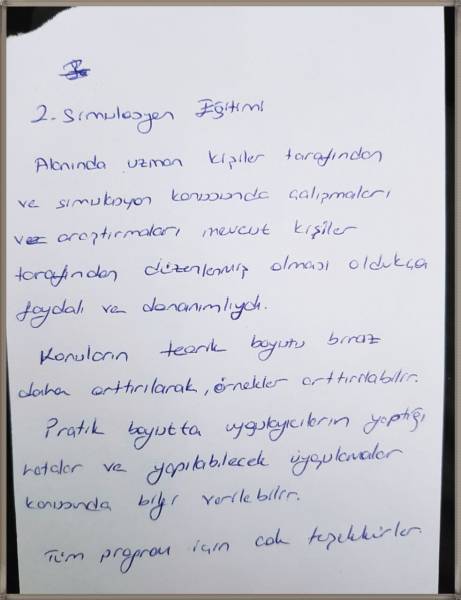 2- Simülasyon Eğitimi
Alanında uzman kişiler tarafından
ve simulasyon konusunda çalışmaları
ve araştırmaları mevcut kişiler
tarafından düzenlenmiş olması oldukça
faydalı ve donanımlıydı.
Konuların teorik boyutu biraz
daha arttırılarak, örnekler arttırılabilir.
Pratik boyutta uygulayıcıların yaptığı
hatalar ve yapılabilecek uygulamalar
konusunda bilgi verilebilir.
Tüm program için çok teşekkürler.